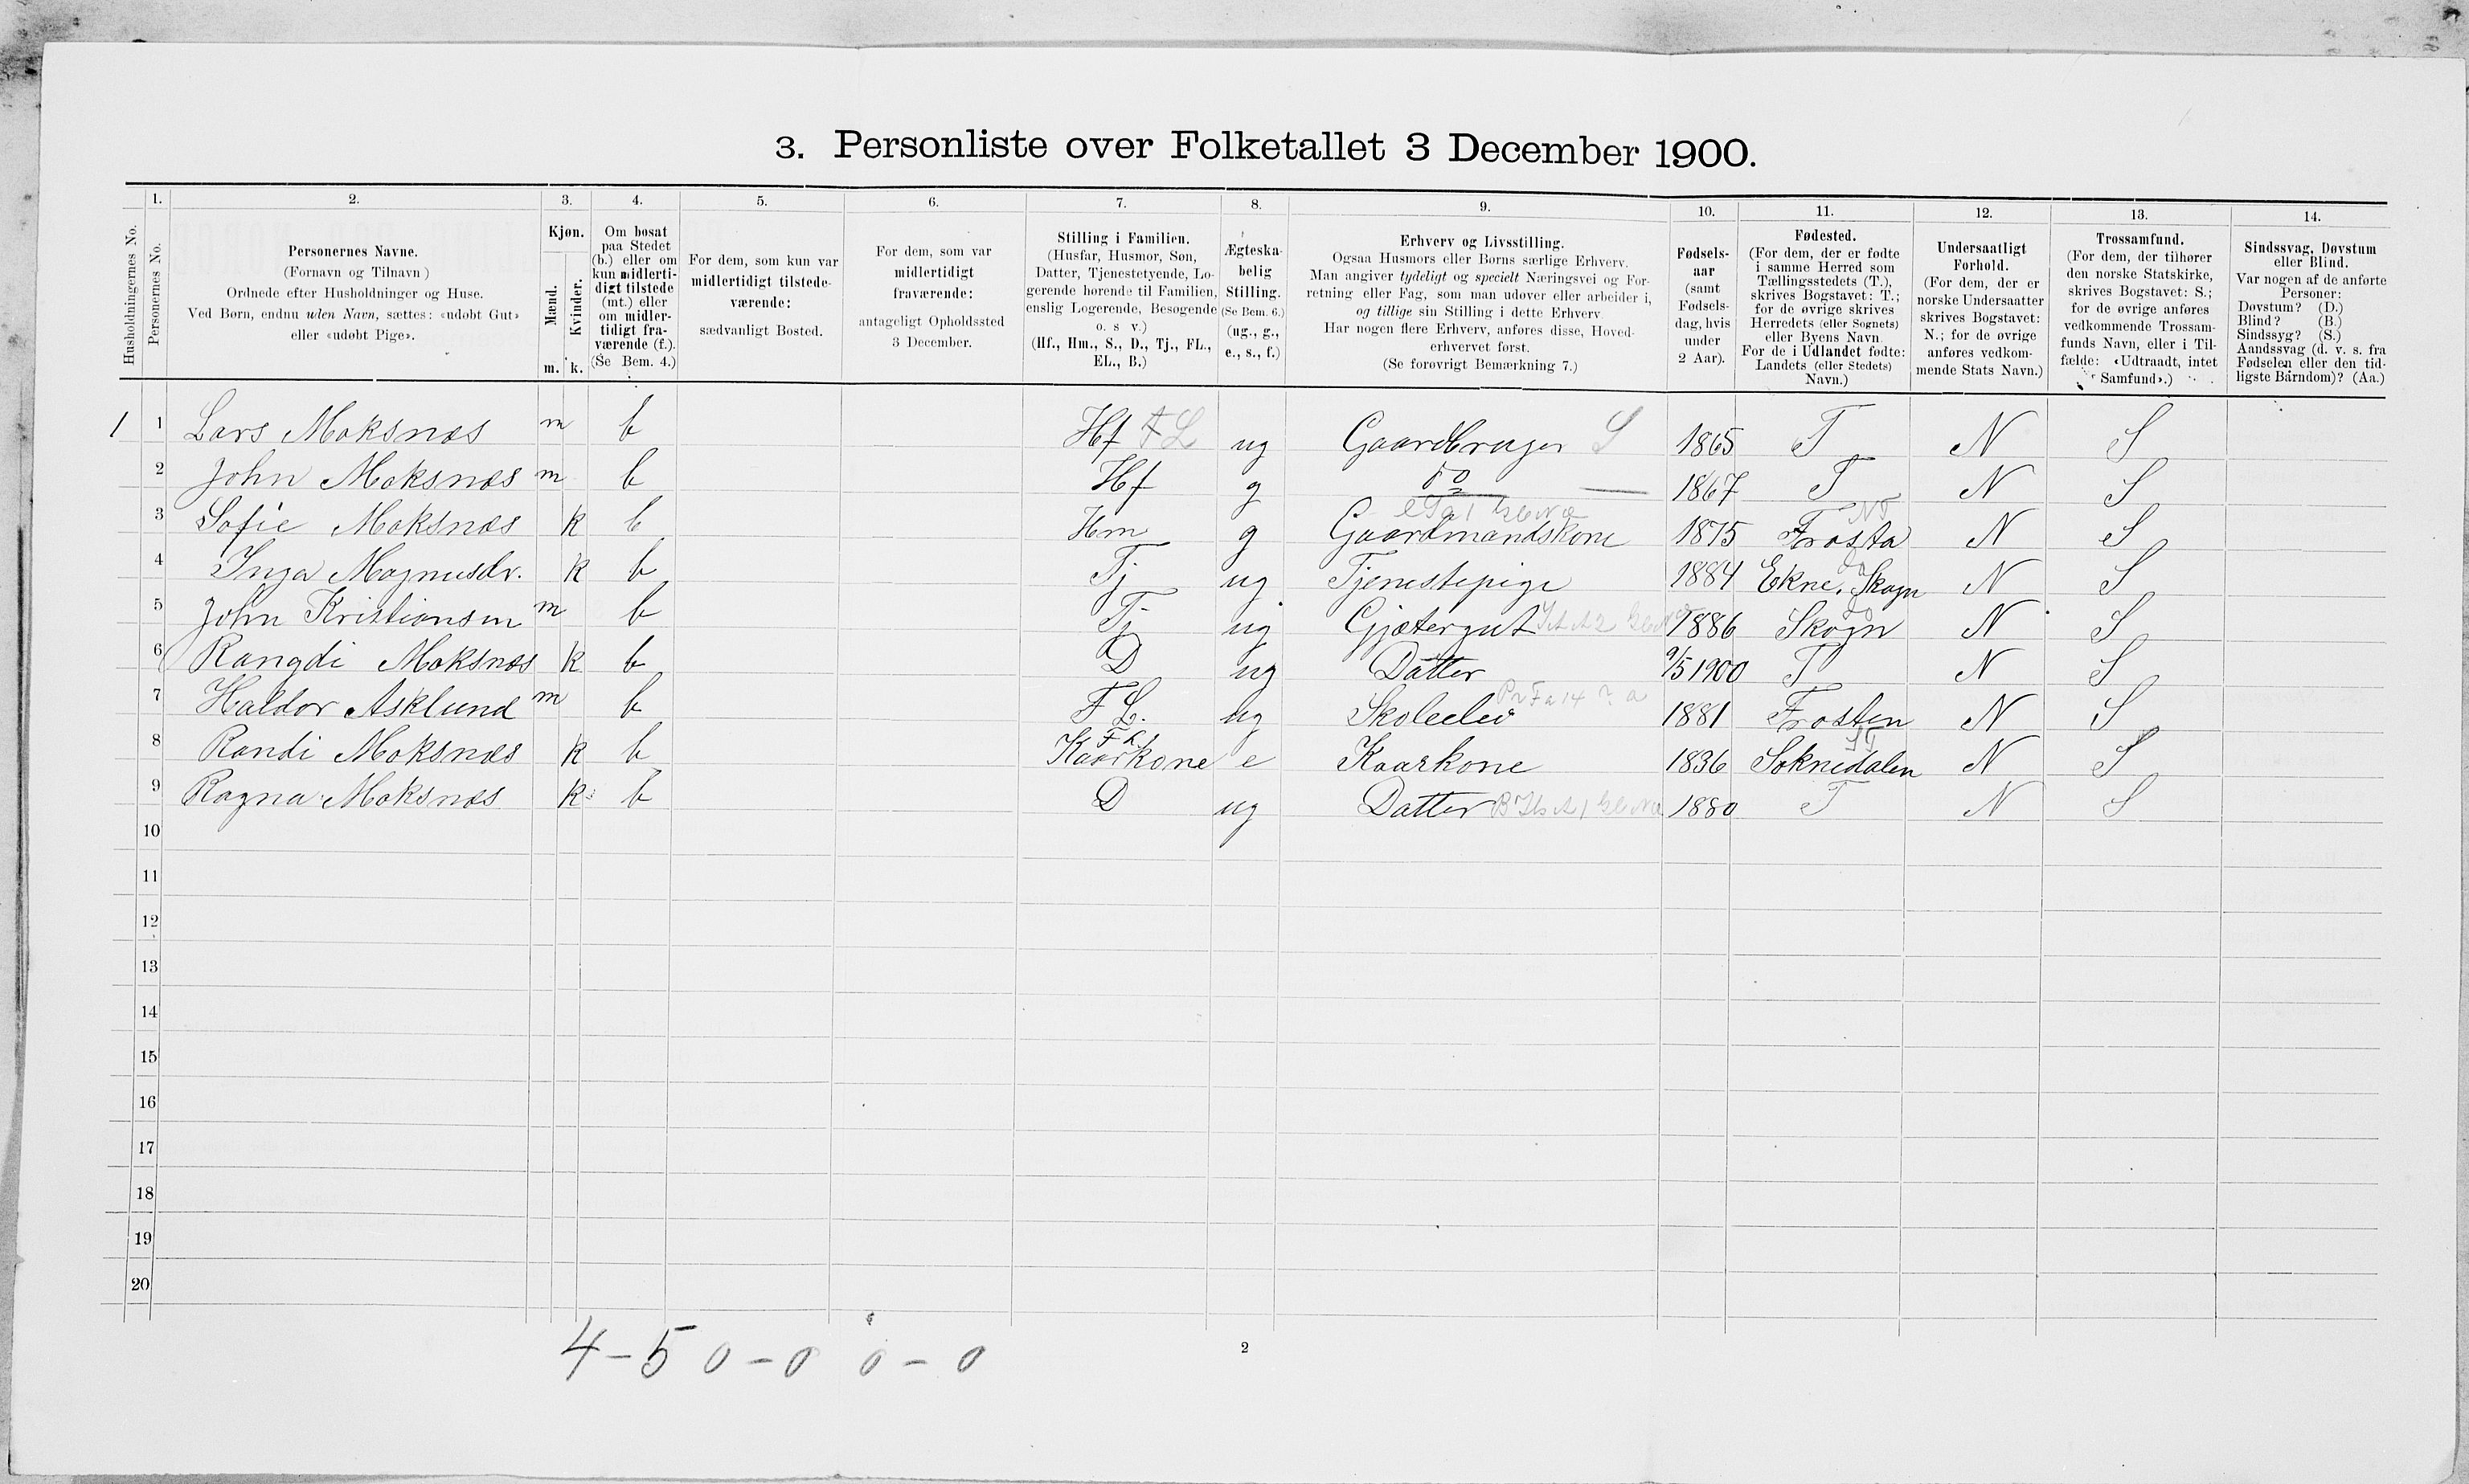 3. Personliste over Folketallet 3 December 1900.
1. 2. 3. 4. 5. 6. 7. 8. 9. 10. 11. 12. 13. 14.
Husholdningernes No.
Personernes No.
Personernes Navne.
(Fornavn og Tilnavn)
Ordnede efter Husholdninger og Huse.
Ved Børn, endnu uden Navn, sættes: «udøbt Gut»
eller «udøbt Pige».
Kjøn.
Mænd.
Kvinder.
m. k.
Om bosat
paa Stedet
(b.) eller om
kun midlerti-
digt tilstede
(mt.) eller
om midler-
tidigt fra-
værende (f.).
(Se Bem. 4.)
For dem, som kun var
midlertidigt tilstede-
værende:
sædvanligt Bosted.
For dem, som var
midlertidigt
fraværende:
antageligt Opholdssted
3 December.
Stilling i Familien.
(Husfar, Husmor, Søn,
Datter, Tjenestetyende, Lo-
gerende hørende til Familien,
enslig Logerende, Besøgende
o. s v.)
(Hf., Hm., S., D., Tj., FL.,
EL., B.)
Ægteska-
belig
Stilling.
(Se Bem. 6.)
(ug., g.,
e., s., f.)
Erhverv og Livsstilling.
Ogsaa Husmors eller Børns særlige Erhverv.
Man angiver tydeligt og specielt Næringsvei og For-
retning eller Fag, som man udøver eller arbeider i,
og tillige sin Stilling i dette Erhverv
Har nogen flere Erhverv, anføres disse, Hoved-
erhvervet først.
(Se forøvrigt Bemærkning 7.)
Fødsels-
aar
(samt
Fødsels-
dag, hvis
under
2 Aar).
Fødested.
(For dem, der er fødte
i samme Herred som
Tællingsstedets (T.),
skrives Bogstavet: T.;
for de øvrige skrives
Herredets (eller Sognets)
eller Byens Navn.
For de i Udlandet fødte:
Landets (eller Stedets)
Navn.)
Undersaatligt
Forhold.
(For dem, der er
norske Undersaatter
skrives Bogstavet:
N.; for de øvrige
anføres vedkom-
mende Stats Navn.)
Trossamfund.
(For dem, der tilhører
den norske Statskirke,
skrives Bogstavet: S.;
for de øvrige anføres
vedkommende Trossam-
funds Navn, eller i Til-
fælde: «Udtraadt, intet
Samfund».)
Sindssvag, Døvstum
eller Blind.
Var nogen af de anførte
Personer:
Døvstum? (D.)
Blind? (B.)
Sindssyg? (S.)
Aandssvag (d. v. s. fra
Fødselen eller den tid-
ligste Barndom)? (Aa.)
1 1 Lars Moksnæs m b Hf FL ug Gaardbruger S 1865 T N S
2 John Moksnæs m b Hf g do — 1867 T N S
3 Sofie Moksnæs k b Hm g Gaardmandskone 1875 Frosta NT N S
4 Inga Magnusdr. k b Tj ug Tjenestepige 1884 Ekne, Skogn do N S
5 John Kristiansen m b Tj ug Gjætergut 1886 Skogn do N S
6 Rangdi Moksnæs k b D ug Datter 9/5 1900 T N S
7 Haldor Asklund m b FL. ug Skoleelev 1881 Frosten N S
8 Randi Moksnæs k b FL Kaarkone e Kaarkone 1836 Soknedalen ST N S
9 Ragna Moksnæs k b D ug Datter 1880 T N S
10
11
12
13
14
15
16
17
18
19
20
4-5 0-0 0-0
2